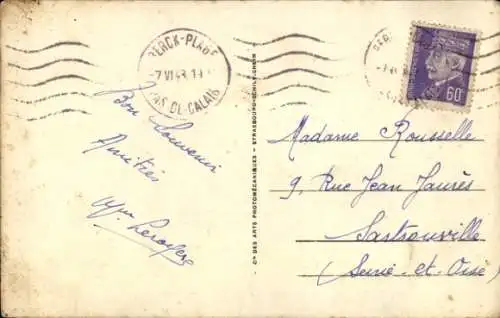 BERCK-PLAGE
7 VI 43
PAS DE CALAIS
60
Bon Souvenir
Amitiés
Cie DES ARTS PHOTOMÉCANIQUES - STRASBOURG-SCHILTIGHEIM
Madame Rousselle
9, Rue Jean Jaurès
Sartrouville
(Seine-et-Oise)